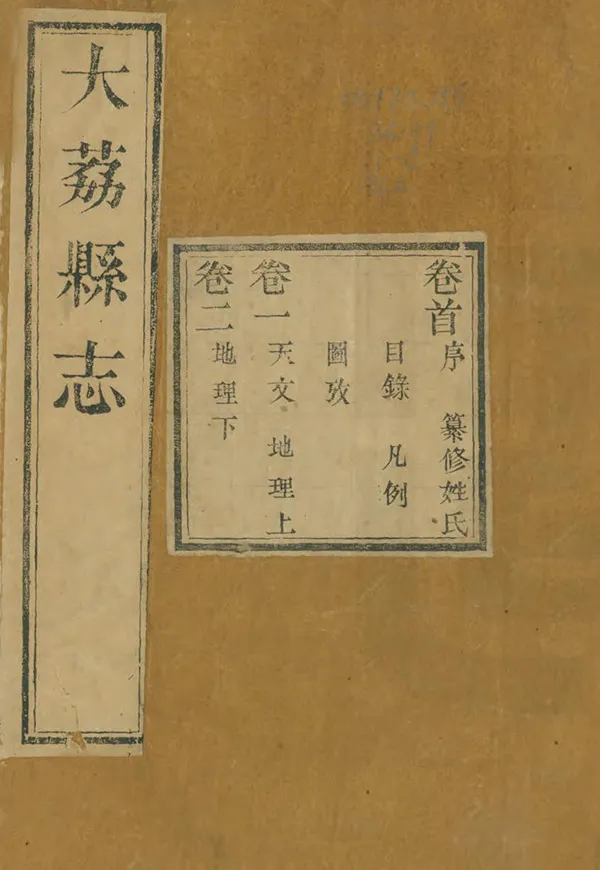 大荔縣志
卷首 序 纂修姓氏
目錄 凡例
圖攷
卷一 天文 地理上
卷二 地理下